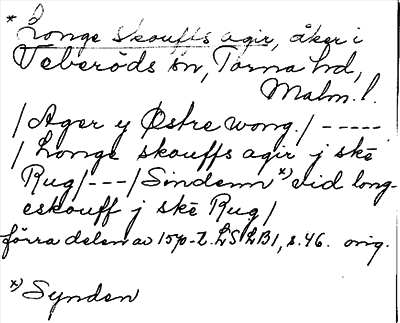 * Longe skouffs agir, åker i
Veberöds sn, Torna hd,
Malm. l.
/ Ager y Østre wong / -----
/ Longe skouffs agir j skē
Rug / --- / Sindenn *) vid long-
eskouff j skē Rug /
förra delen av 1570-t. LSLB1, s. 46. orig.
*) Synden